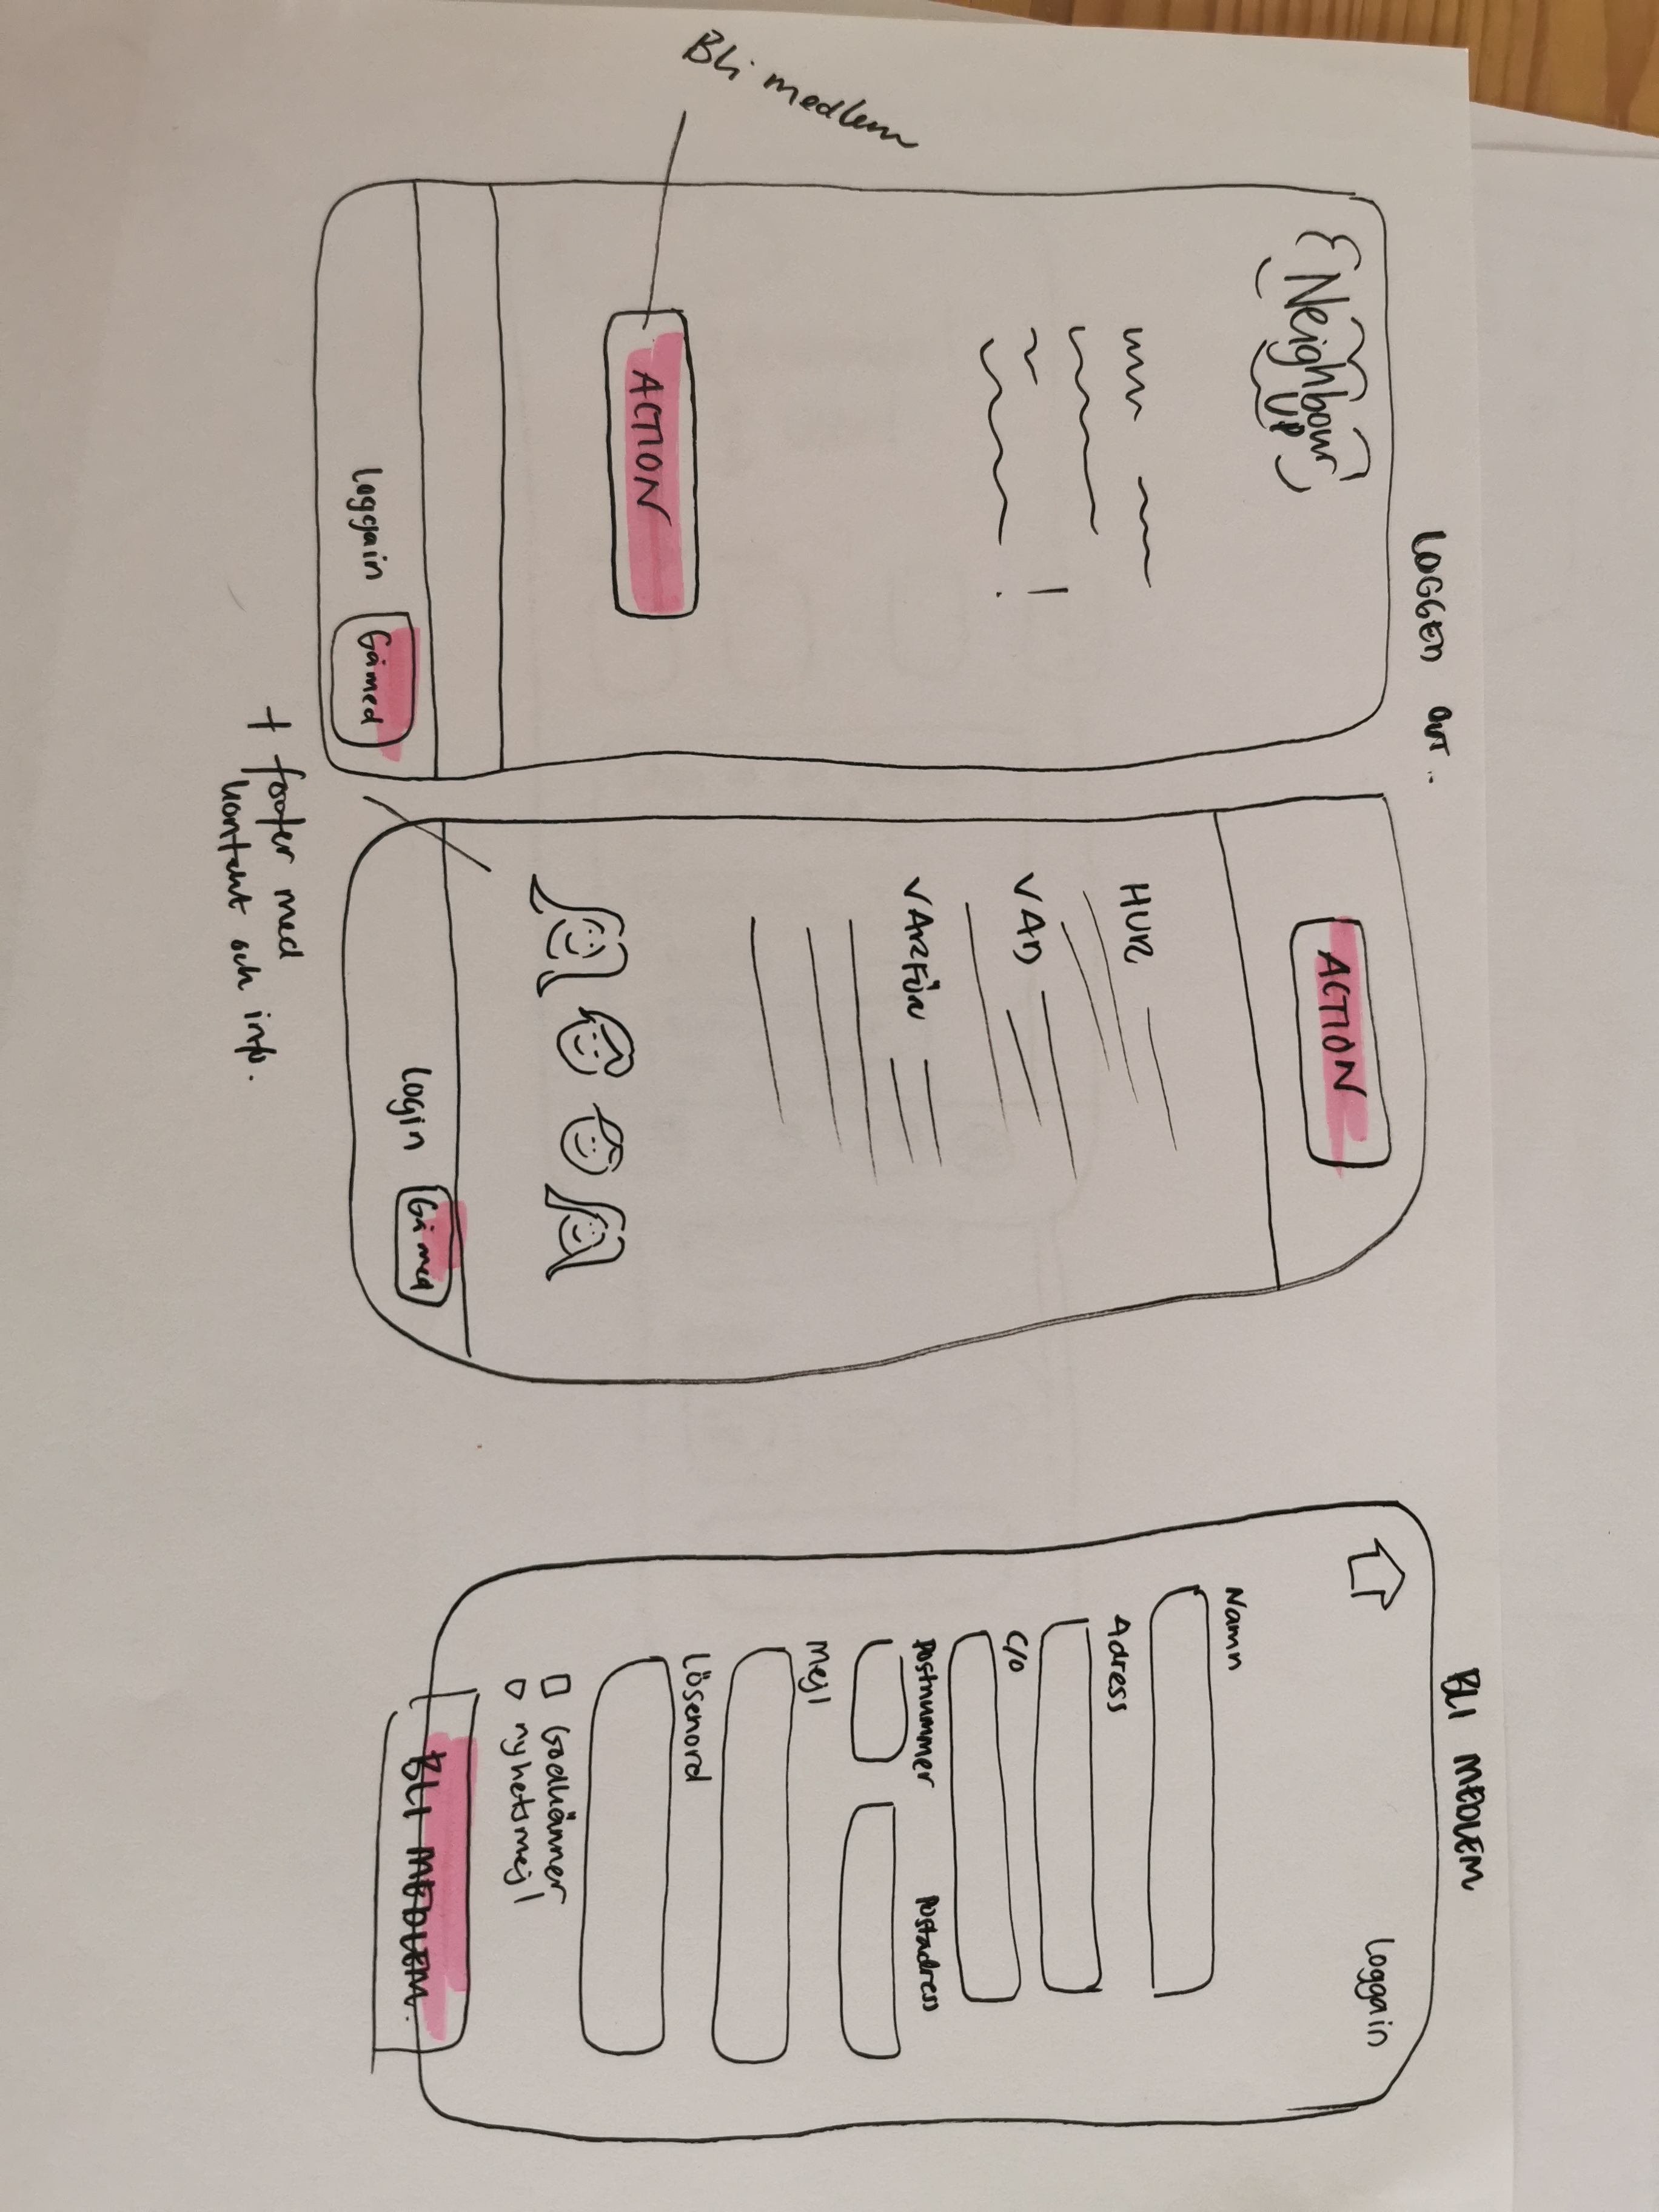 LOGGED OUT.
Neighbour
UP
ACTION
Bli medlem
Loggain
Gå med
ACTION
HUR
VAD
VARFÖR
Login
Gå med
+ footer med
kontakt och info.
BLI MEDLEM
Loggain
Namn
Adress
C/O
Postnummer Postadress
Mejl
Lösenord
Godkänner
nyhetsmejl
BLI MEDLEM.